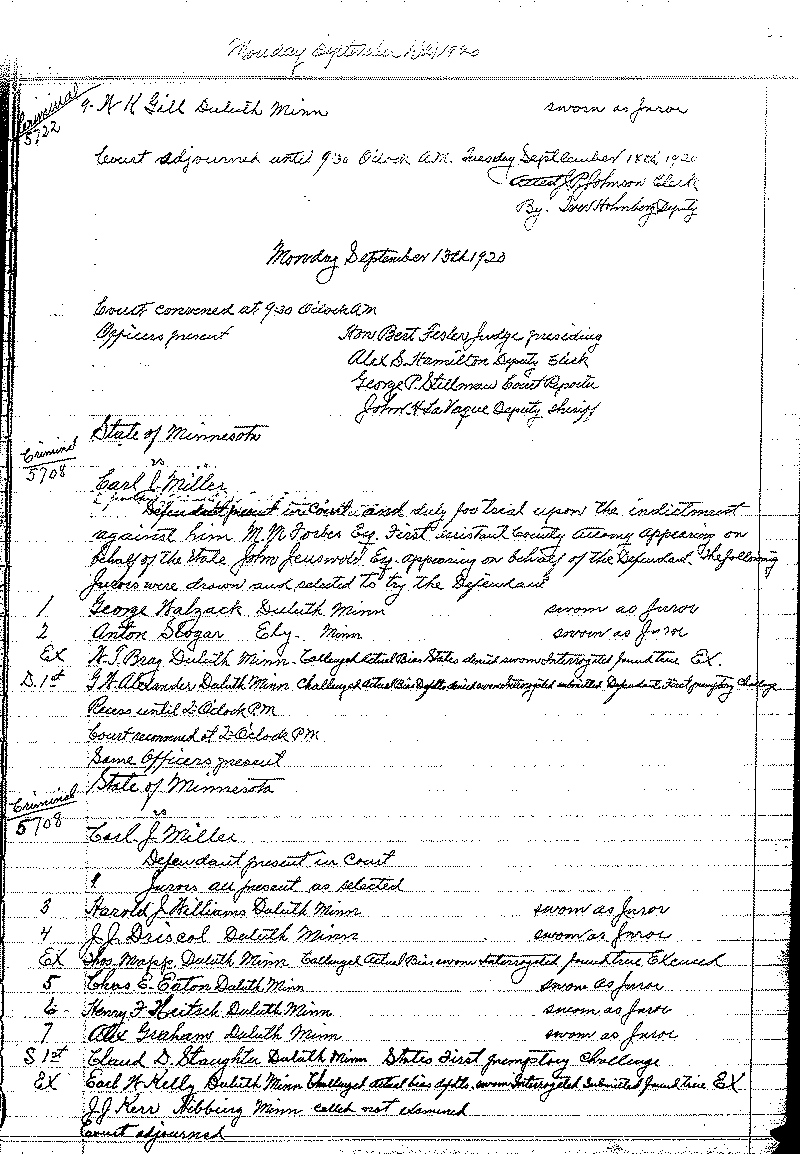 Monday September 13th 1920
Criminal
5722
9- H K Gill Duluth Minn sworn as Juror
Court adjourned until 9 30 Oclock A.M. Tuesday September 14th 1920
Attest J P Johnson Clerk
By. Iver Holmberg Deputy
Monday September 13th 1920
Court convened at 9 30 Oclock AM
Officers present Hon Bert Fesler Judge presiding
Alex S. Hamilton Deputy Clerk
George P. Stillman Court Reporter
John H LaVaque Deputy Sheriff
State of Minnesota
Criminal
5708
vs
Earl J. Miller
Defendant present in Court and duly for trial upon the indictment
against him M. M. Forbes Esq. First assistant County Attorney appearing on
behalf of the State John Jenswold Esq. appearing on behalf of the Defendant. The following
Jurors were drawn and selected to try the Defendant
1 George Walzack Duluth Minn sworn as Juror
2 Anton Slogar Ely. Minn sworn as Juror
EX Duluth Minn. Challenged Actual Bias States denied sworn Interrogated found true EX.
D. 1st Alexander Duluth Minn Challenged Actual Bias Defts denied sworn Interrogated submitted Defendant First premptory Challenge
Recess until 2 Oclock P.M
Court reconvened at 2 Oclock P.M
Same Officers present
State of Minnesota
Criminal
5708
vs
Earl J. Miller
Defendant present in Court
Jurors all present as selected
3 Harold J. Williams Duluth Minn sworn as Juror
4 J. J. Driscol Duluth Minn sworn as Juror
EX Thos. Duluth Minn Challenged Actual Bias sworn Interrogated found true Excused
5 Chas E. Eaton Duluth Minn sworn as Juror
6 Henry F. Heitsch Duluth Minn sworn as Juror
7 Alex Graham Duluth Minn sworn as Juror
S 1st Claud D. Slaughter Duluth Minn States First premptory Challenge
EX Earl W. Kelly Duluth Minn Challenged actual bias defts. sworn Interrogated Submitted found true EX
J J Kerr Hibbing Minn called not examined
Court adjourned